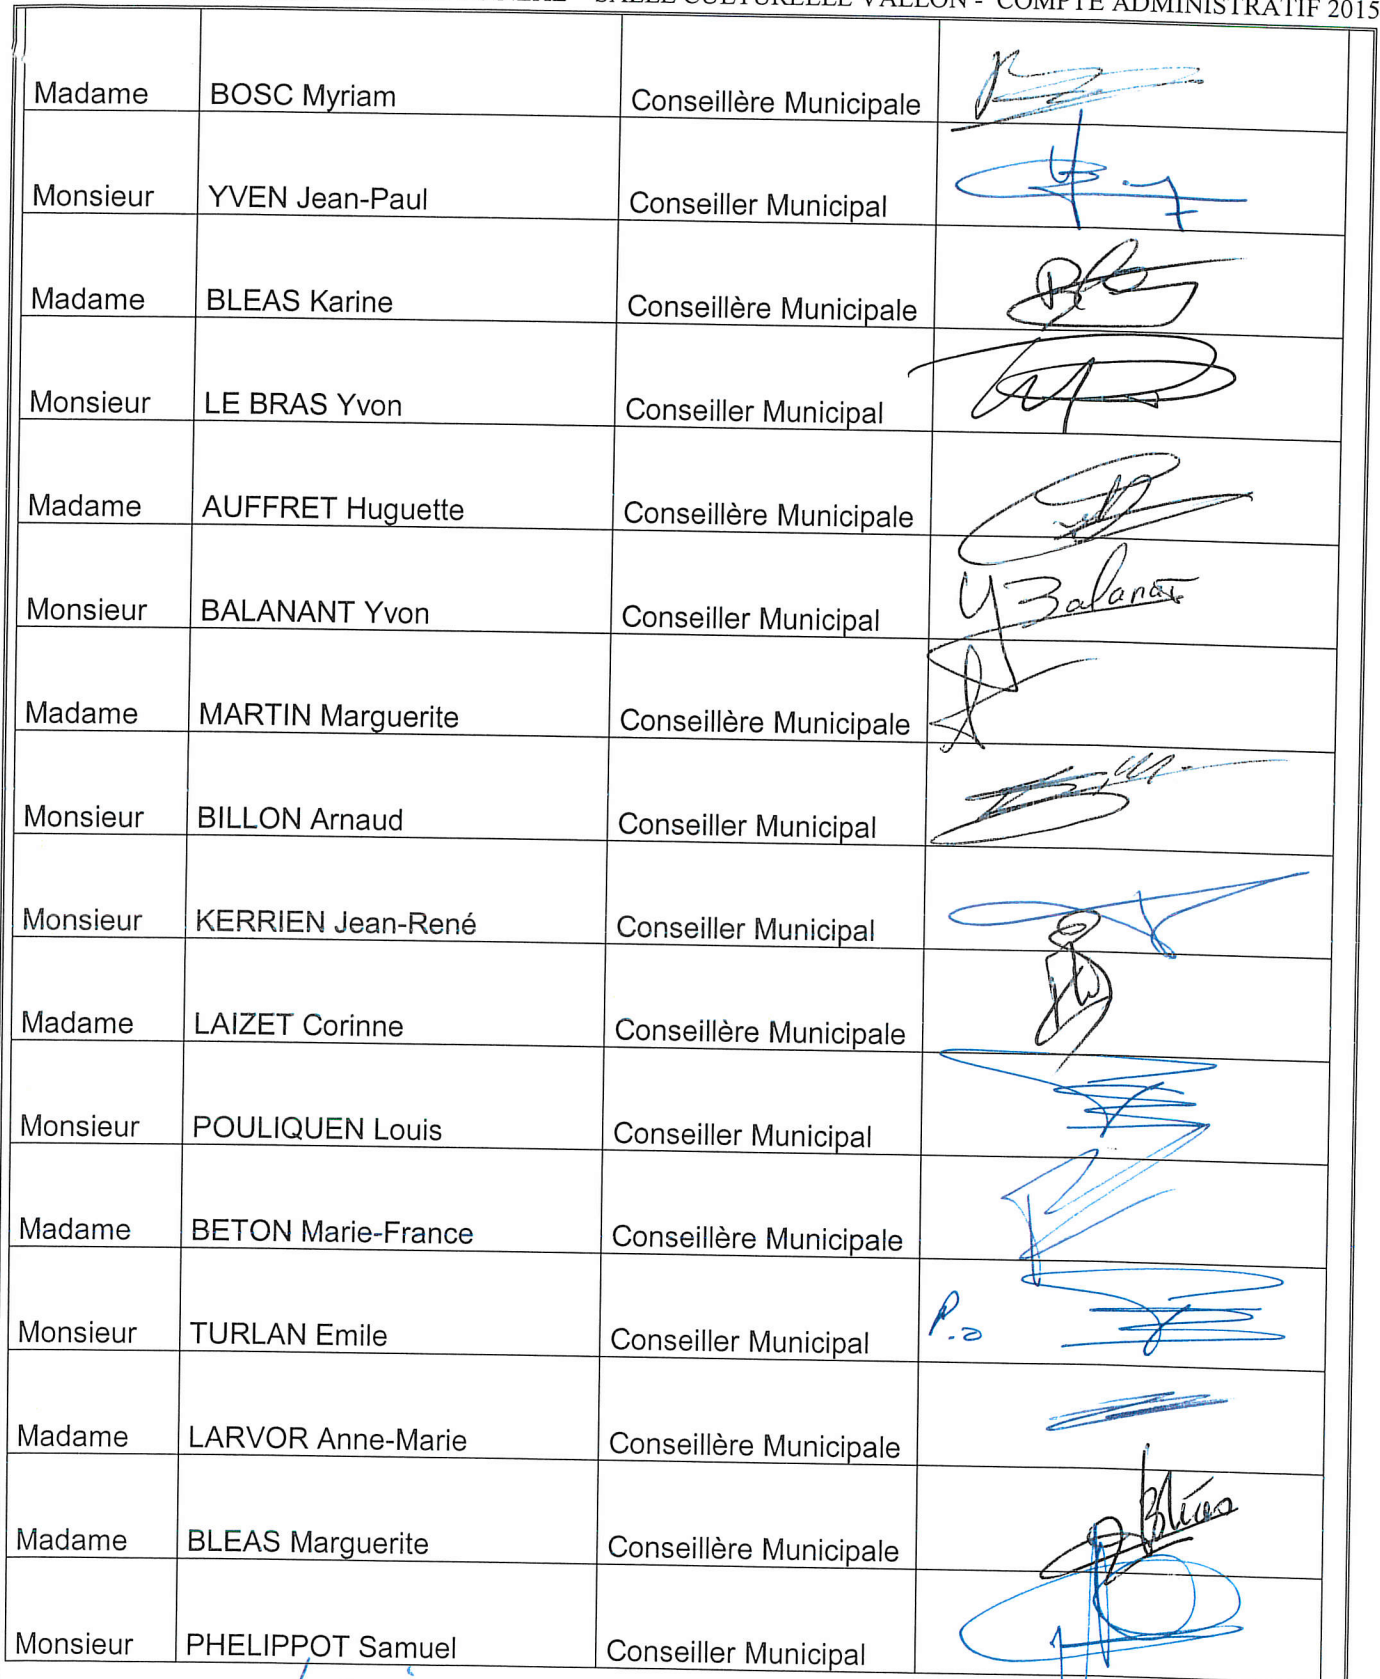 SALLE CULTURELLE VALLON - COMPTE ADMINISTRATIF 2015
Madame BOSC Myriam Conseillère Municipale
Monsieur YVEN Jean-Paul Conseiller Municipal
Madame BLEAS Karine Conseillère Municipale
Monsieur LE BRAS Yvon Conseiller Municipal
Madame AUFFRET Huguette Conseillère Municipale
Monsieur BALANANT Yvon Conseiller Municipal Y Balanant
Madame MARTIN Marguerite Conseillère Municipale
Monsieur BILLON Arnaud Conseiller Municipal
Monsieur KERRIEN Jean-René Conseiller Municipal
Madame LAIZET Corinne Conseillère Municipale
Monsieur POULIQUEN Louis Conseiller Municipal
Madame BETON Marie-France Conseillère Municipale
Monsieur TURLAN Emile Conseiller Municipal P.o
Madame LARVOR Anne-Marie Conseillère Municipale
Madame BLEAS Marguerite Conseillère Municipale Bléas
Monsieur PHELIPPOT Samuel Conseiller Municipal